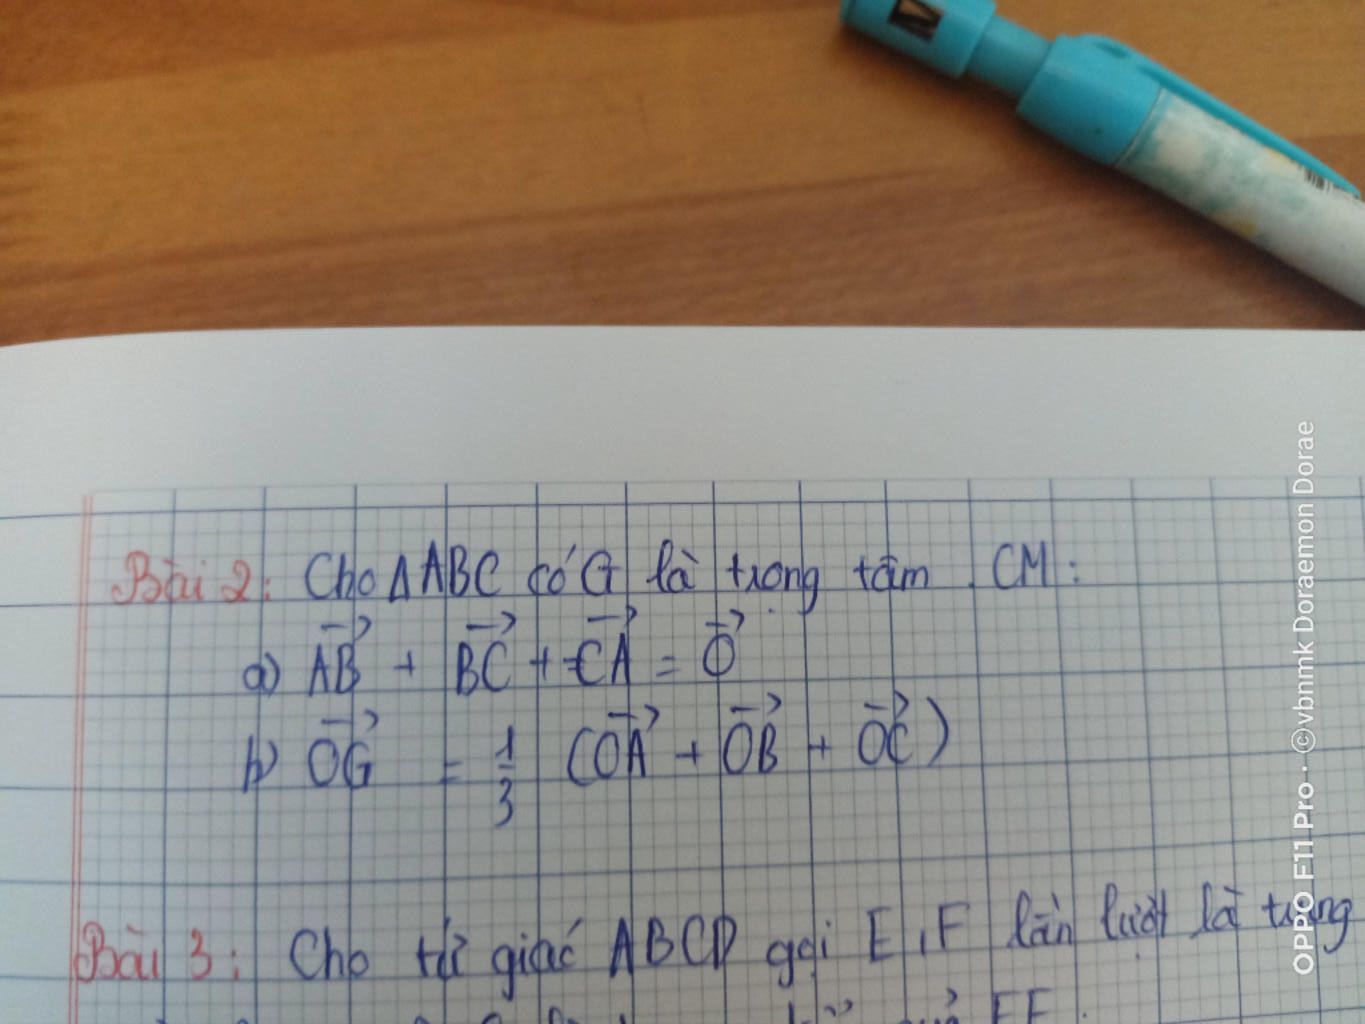 Bài 2: Cho ΔABC có G là trọng tâm. CM:
a) AB⃗ + BC⃗ + CA⃗ = O⃗
b) OG⃗ = 1/3 (OA⃗ + OB⃗ + OC⃗)
Bài 3: Cho tứ giác ABCD gọi E, F lần lượt là trung
EF.
OPPO F11 Pro · ©vbnmk Doraemon Dorae